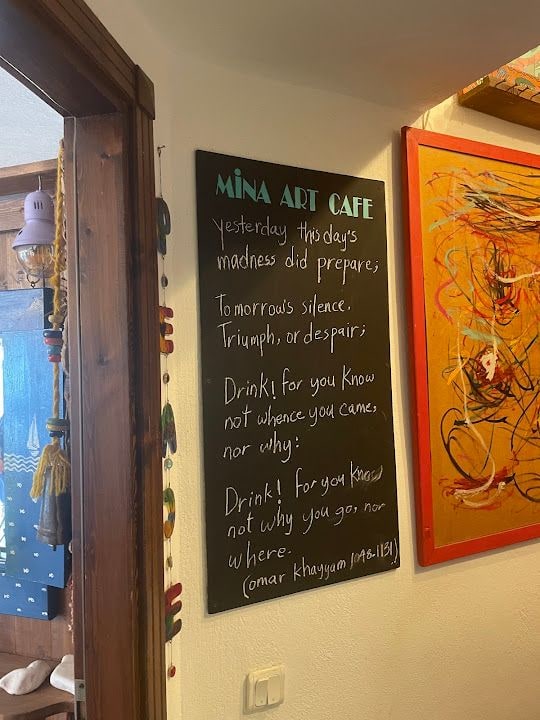 MİNA ART CAFE
yesterday this day's
madness did prepare;
Tomorrow's silence.
Triumph, or despair;
Drink! for you know
not whence you came,
nor why:
Drink! For you know
not why you go, nor
where.
(omar khayyam 1048-1131)